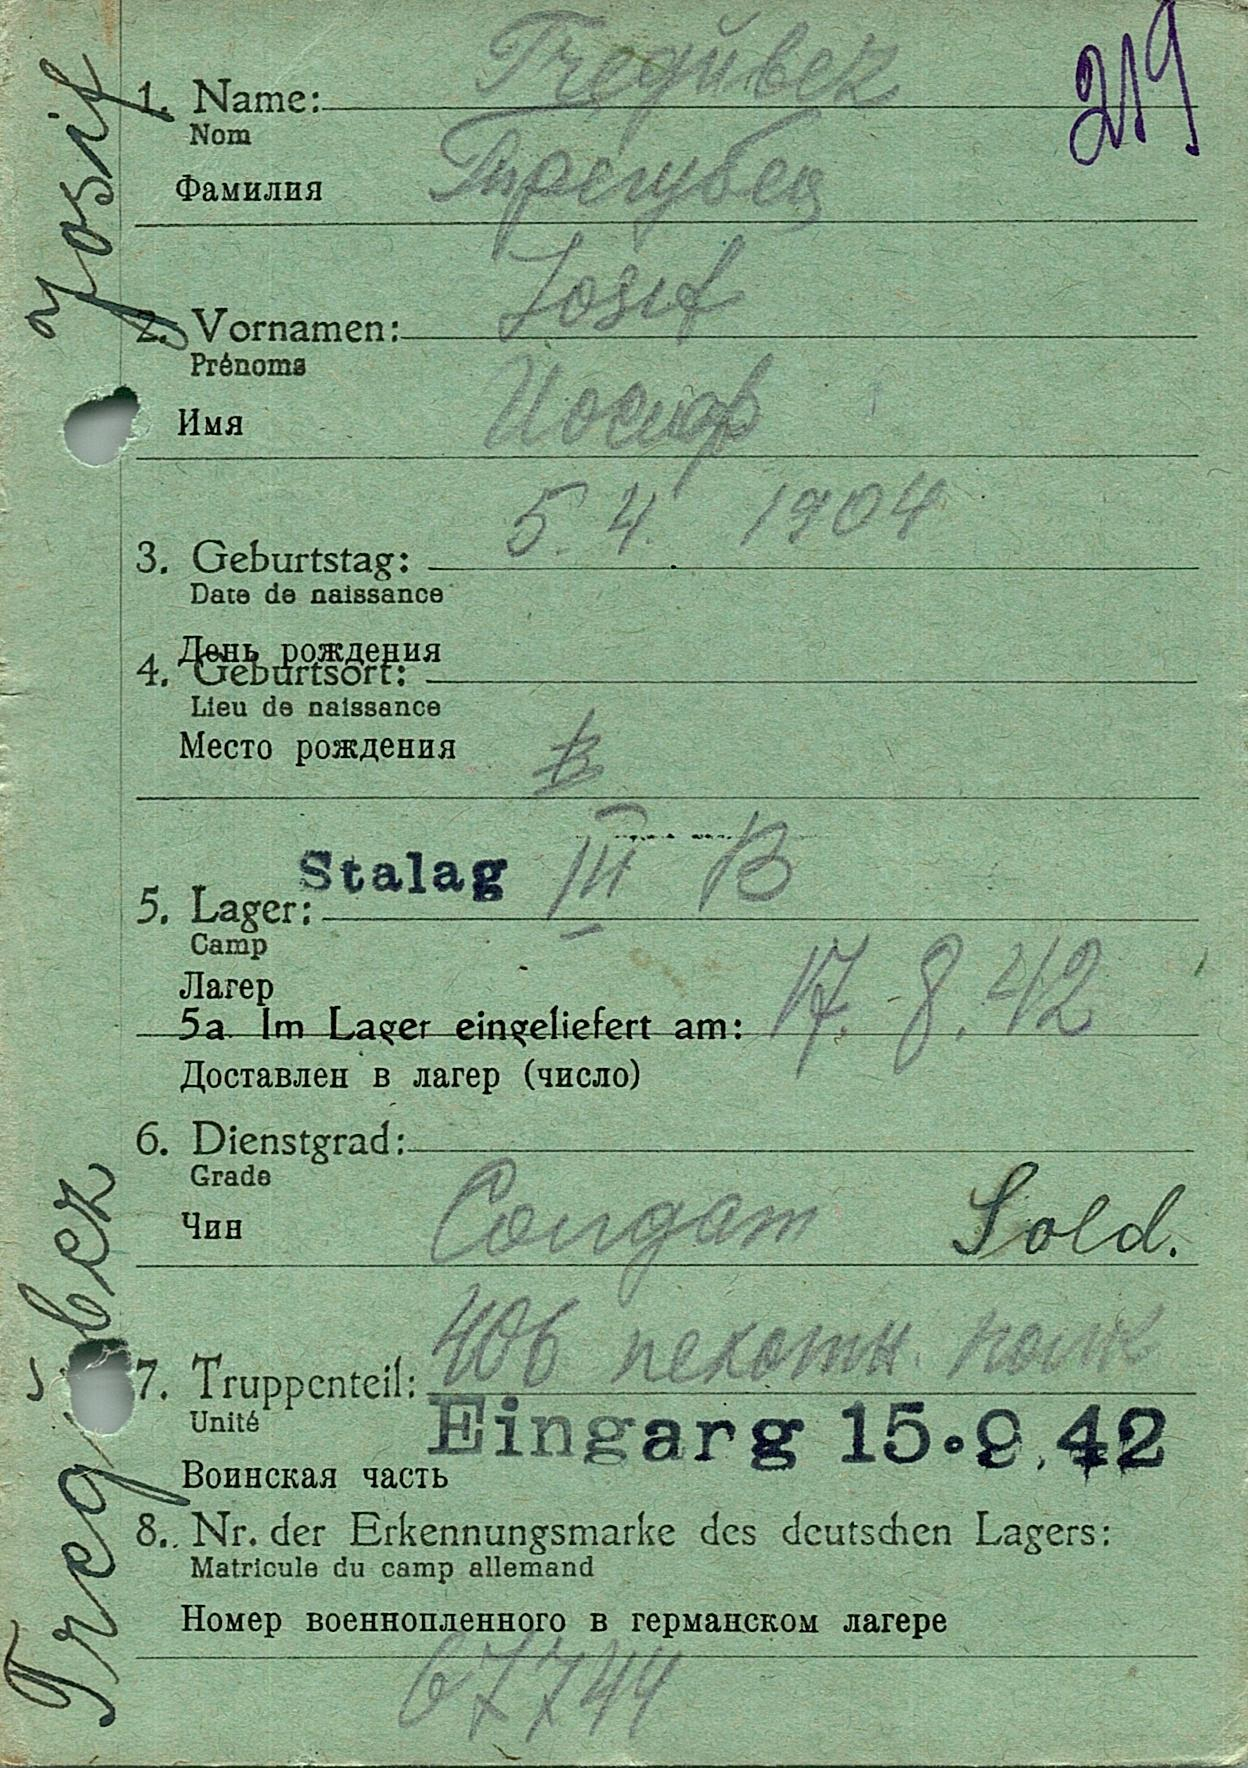 Tregubez
219
1. Name:
Nom
Фамилия Трегубец
Josif
2. Vornamen:
Prénoms
Имя Иосиф
5. 4. 1904
3. Geburtstag:
Date de naissance
День рождения
4. Geburtsort:
Lieu de naissance
Место рождения
Stalag III B
5. Lager:
Camp
Лагер
5a Im Lager eingeliefert am: 17. 8. 42
Доставлен в лагер (число)
6. Dienstgrad:
Grade
Чин Солдат Sold.
406 пехотн. полк
7. Truppenteil:
Unité
Eingarg 15.9.42
Воинская часть
8. Nr. der Erkennungsmarke des deutschen Lagers:
Matricule du camp allemand
Номер военнопленного в германском лагере
67744
Josif